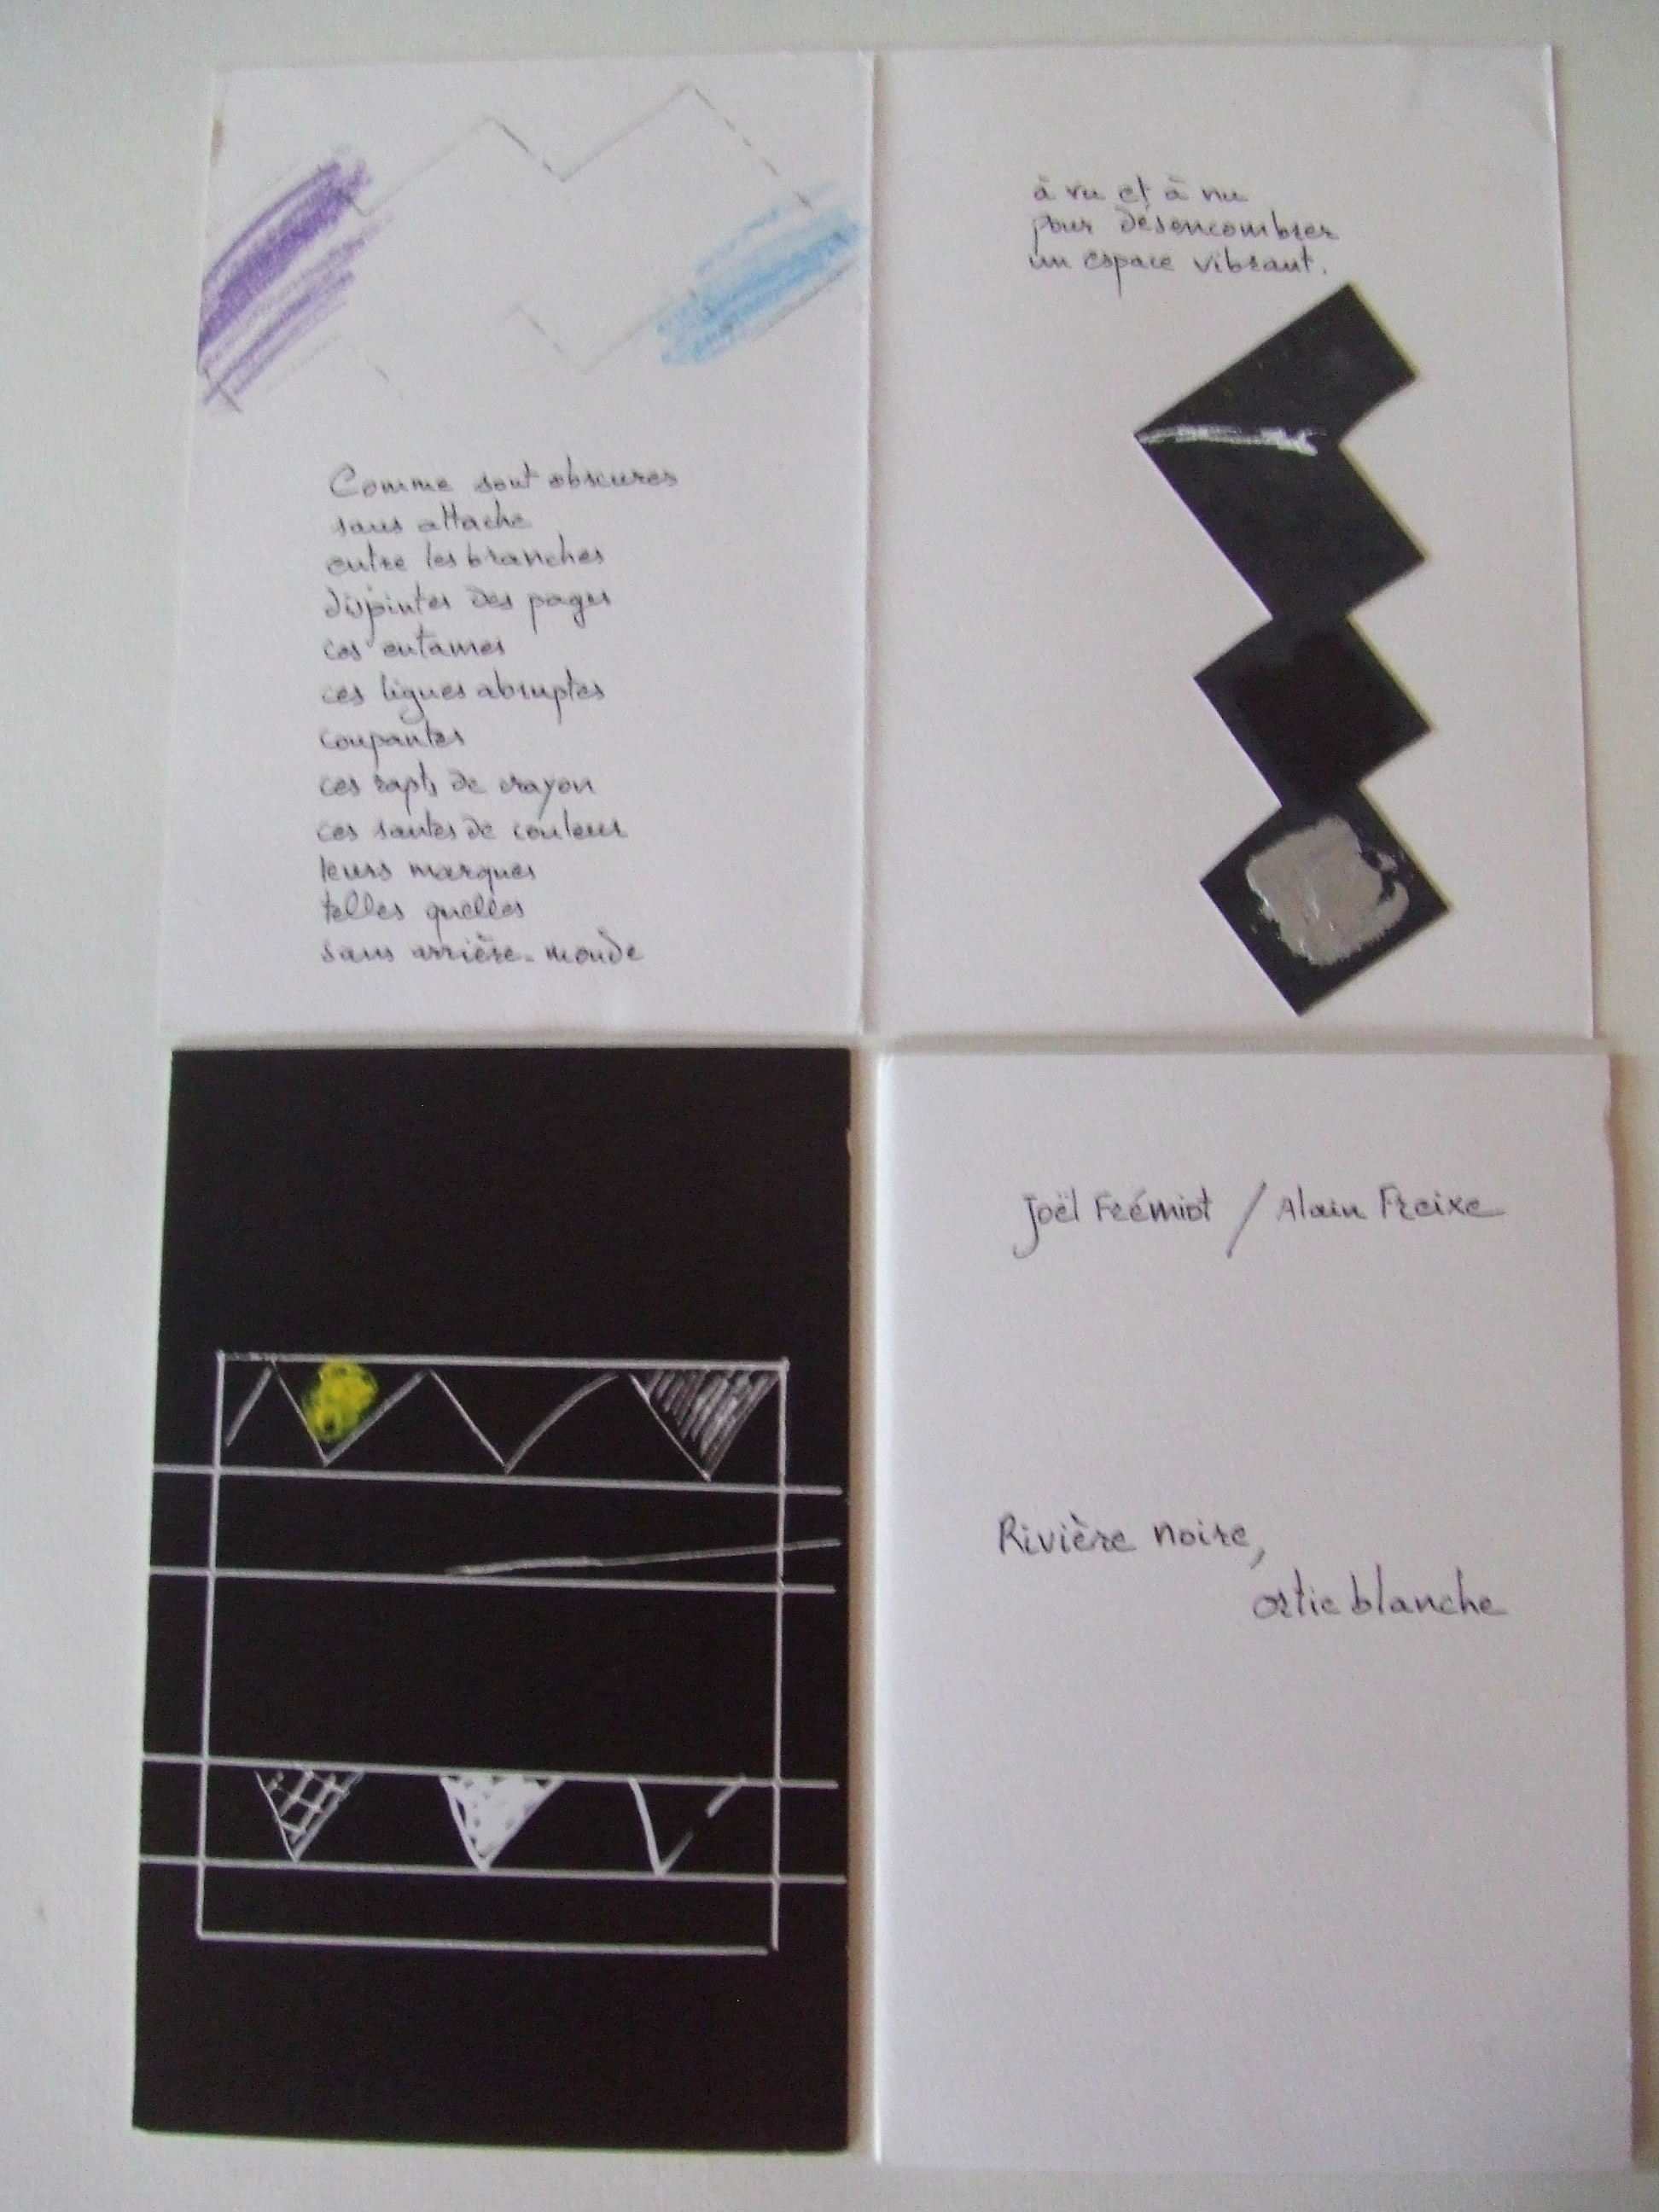 Comme sont obscures
sans attache
entre les branches
disjointes des pages
ces entames
ces lignes abruptes
coupantes
ces rapts de crayon
ces sautes de couleur
leurs marques
telles quelles
sans arrière-monde
à vu et à nu
pour désencombrer
un espace vibrant.
Joël Frémiot / Alain Freixe
Rivière noire,
ortie blanche